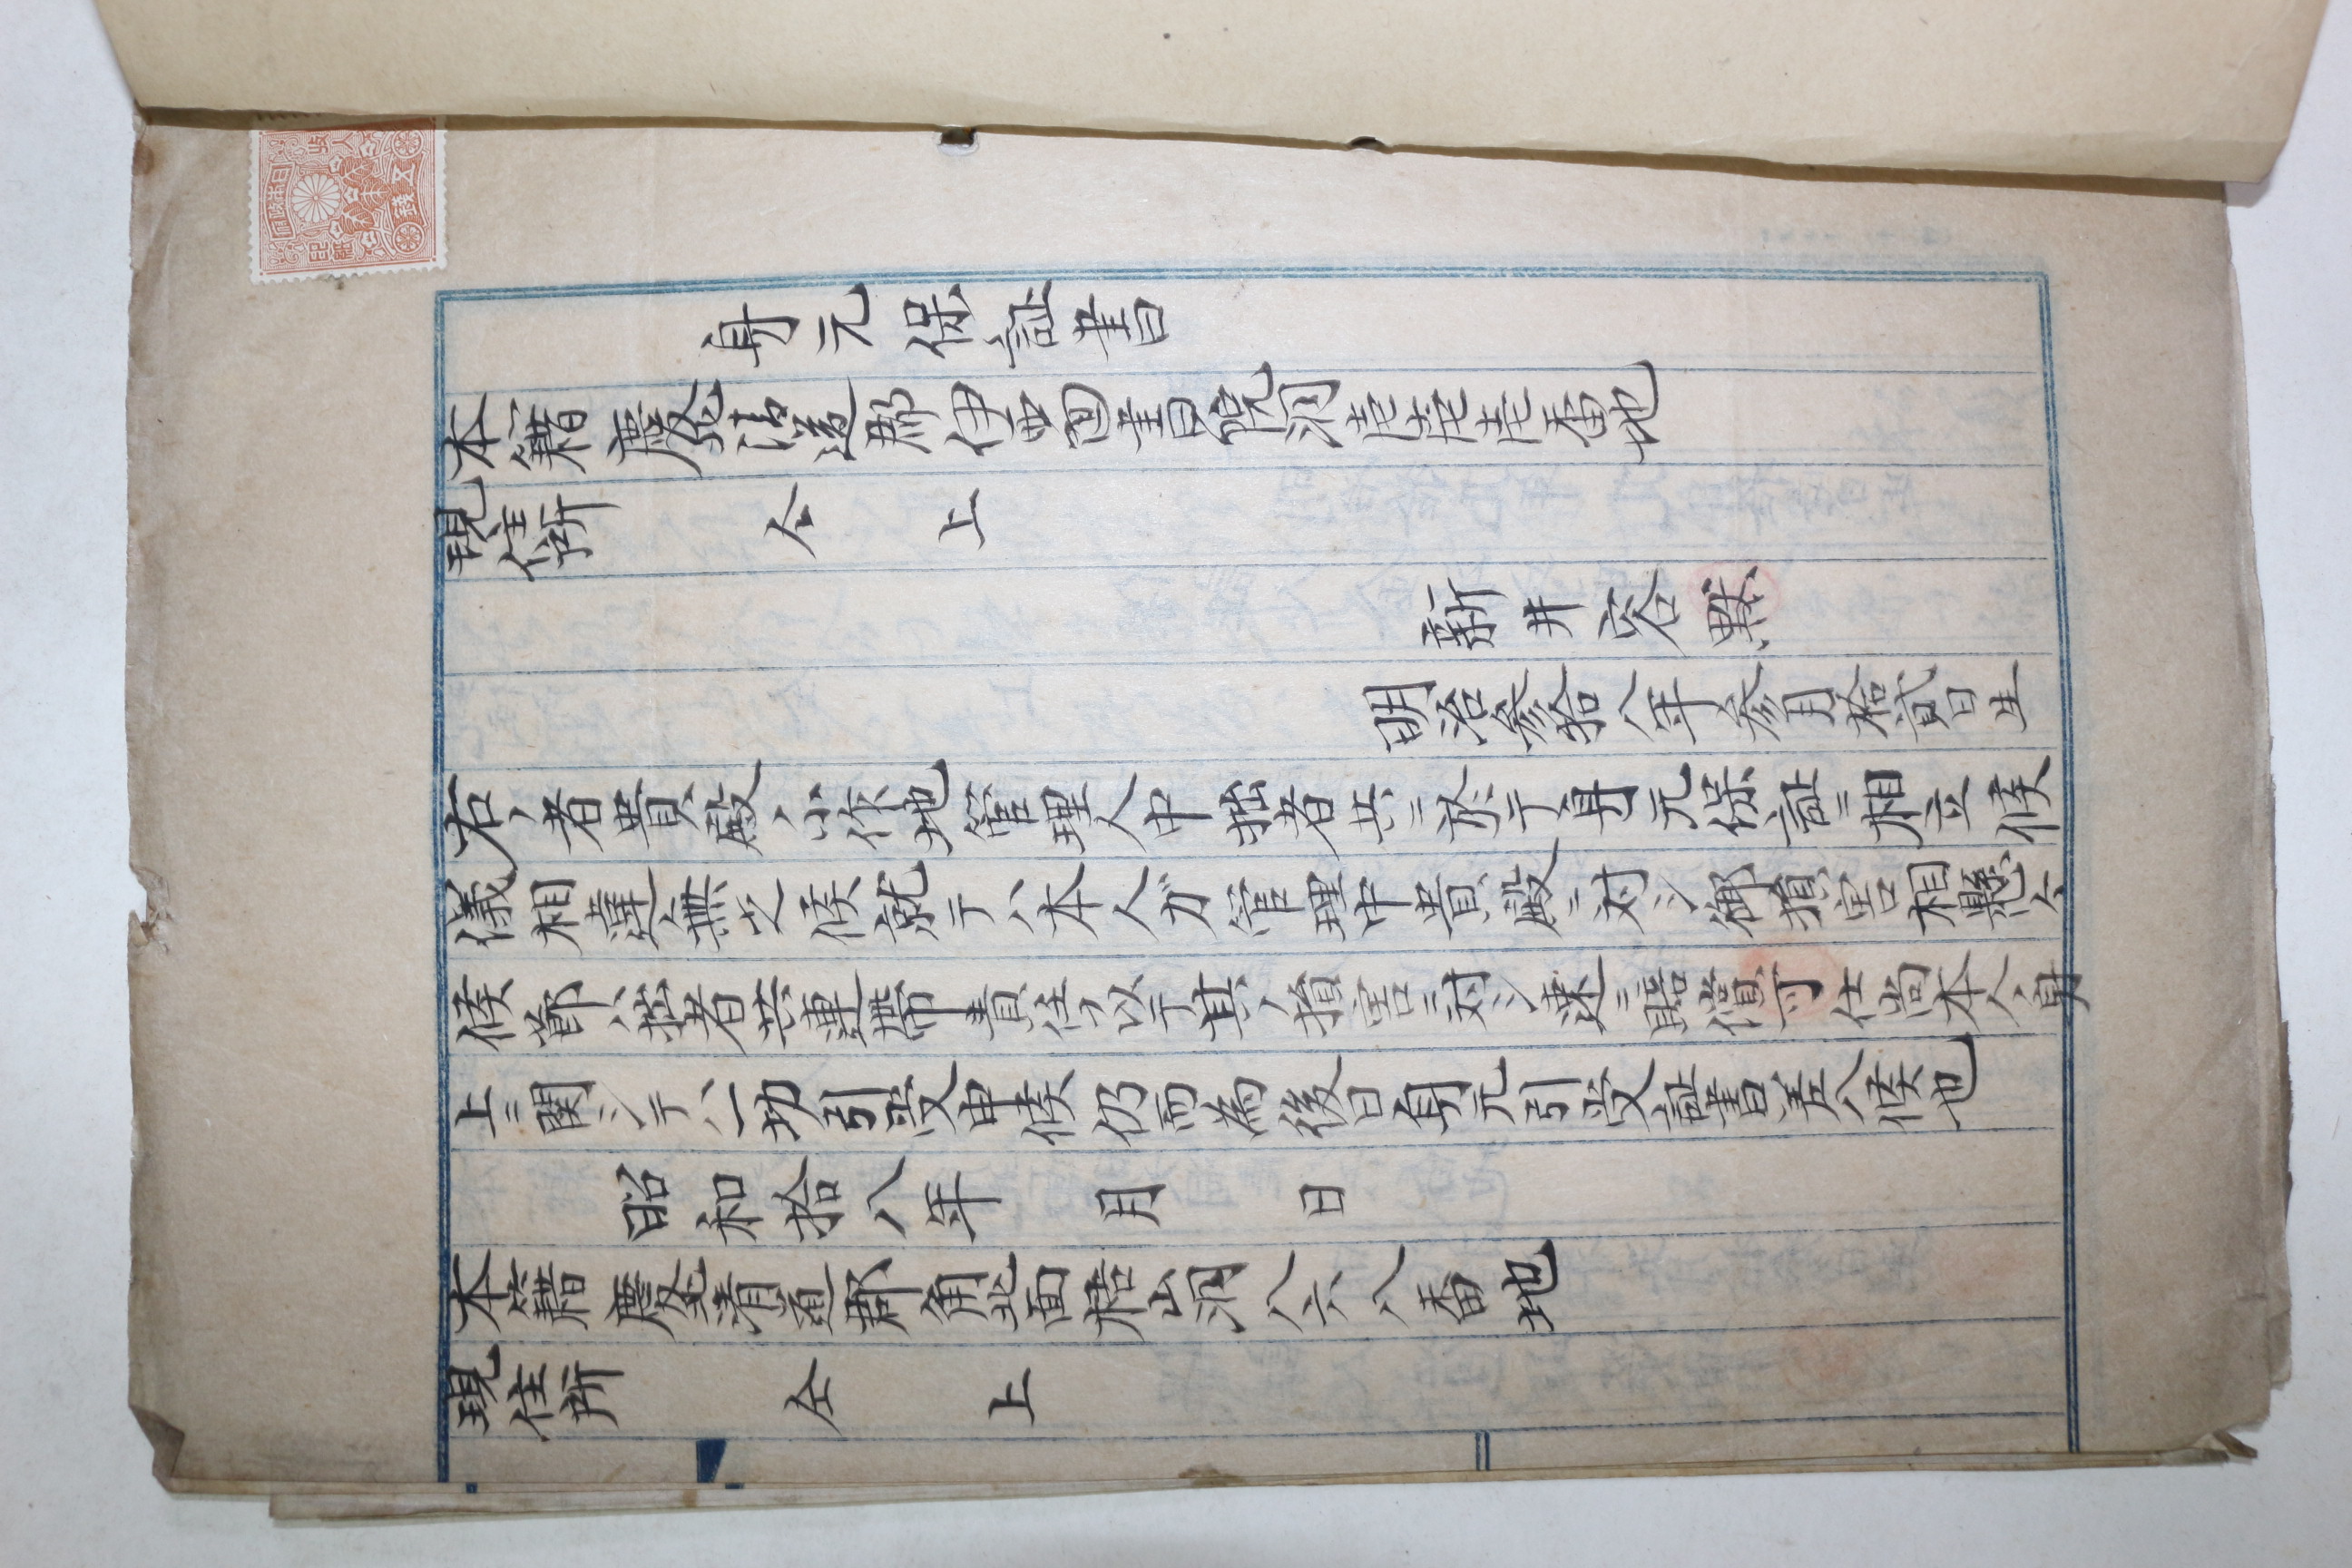 收入
印紙
日本政府
五錢
身元保証書
本籍 慶北清道郡伊西面書院洞 番地
現住所 仝 上
新井容黙
明治参拾八年参月拾貳日生
右ノ者貴殿ノ小作地管理人中拙者共ニ於テ身元保証ニ相立候
儀相違無之候就テハ本人ガ管理中貴殿ニ対シ御損害相懸ケ
候節ハ拙者共連帯責任ヲ以テ其ノ損害ニ対シ速ニ賠償可仕尚本人ノ身
上ニ関シテハ一切引受申候仍而為後日身元引受証書差入候也
昭和拾八年 月 日
本籍慶北清道郡角北面梧山洞八六八番地
現住所 仝 上